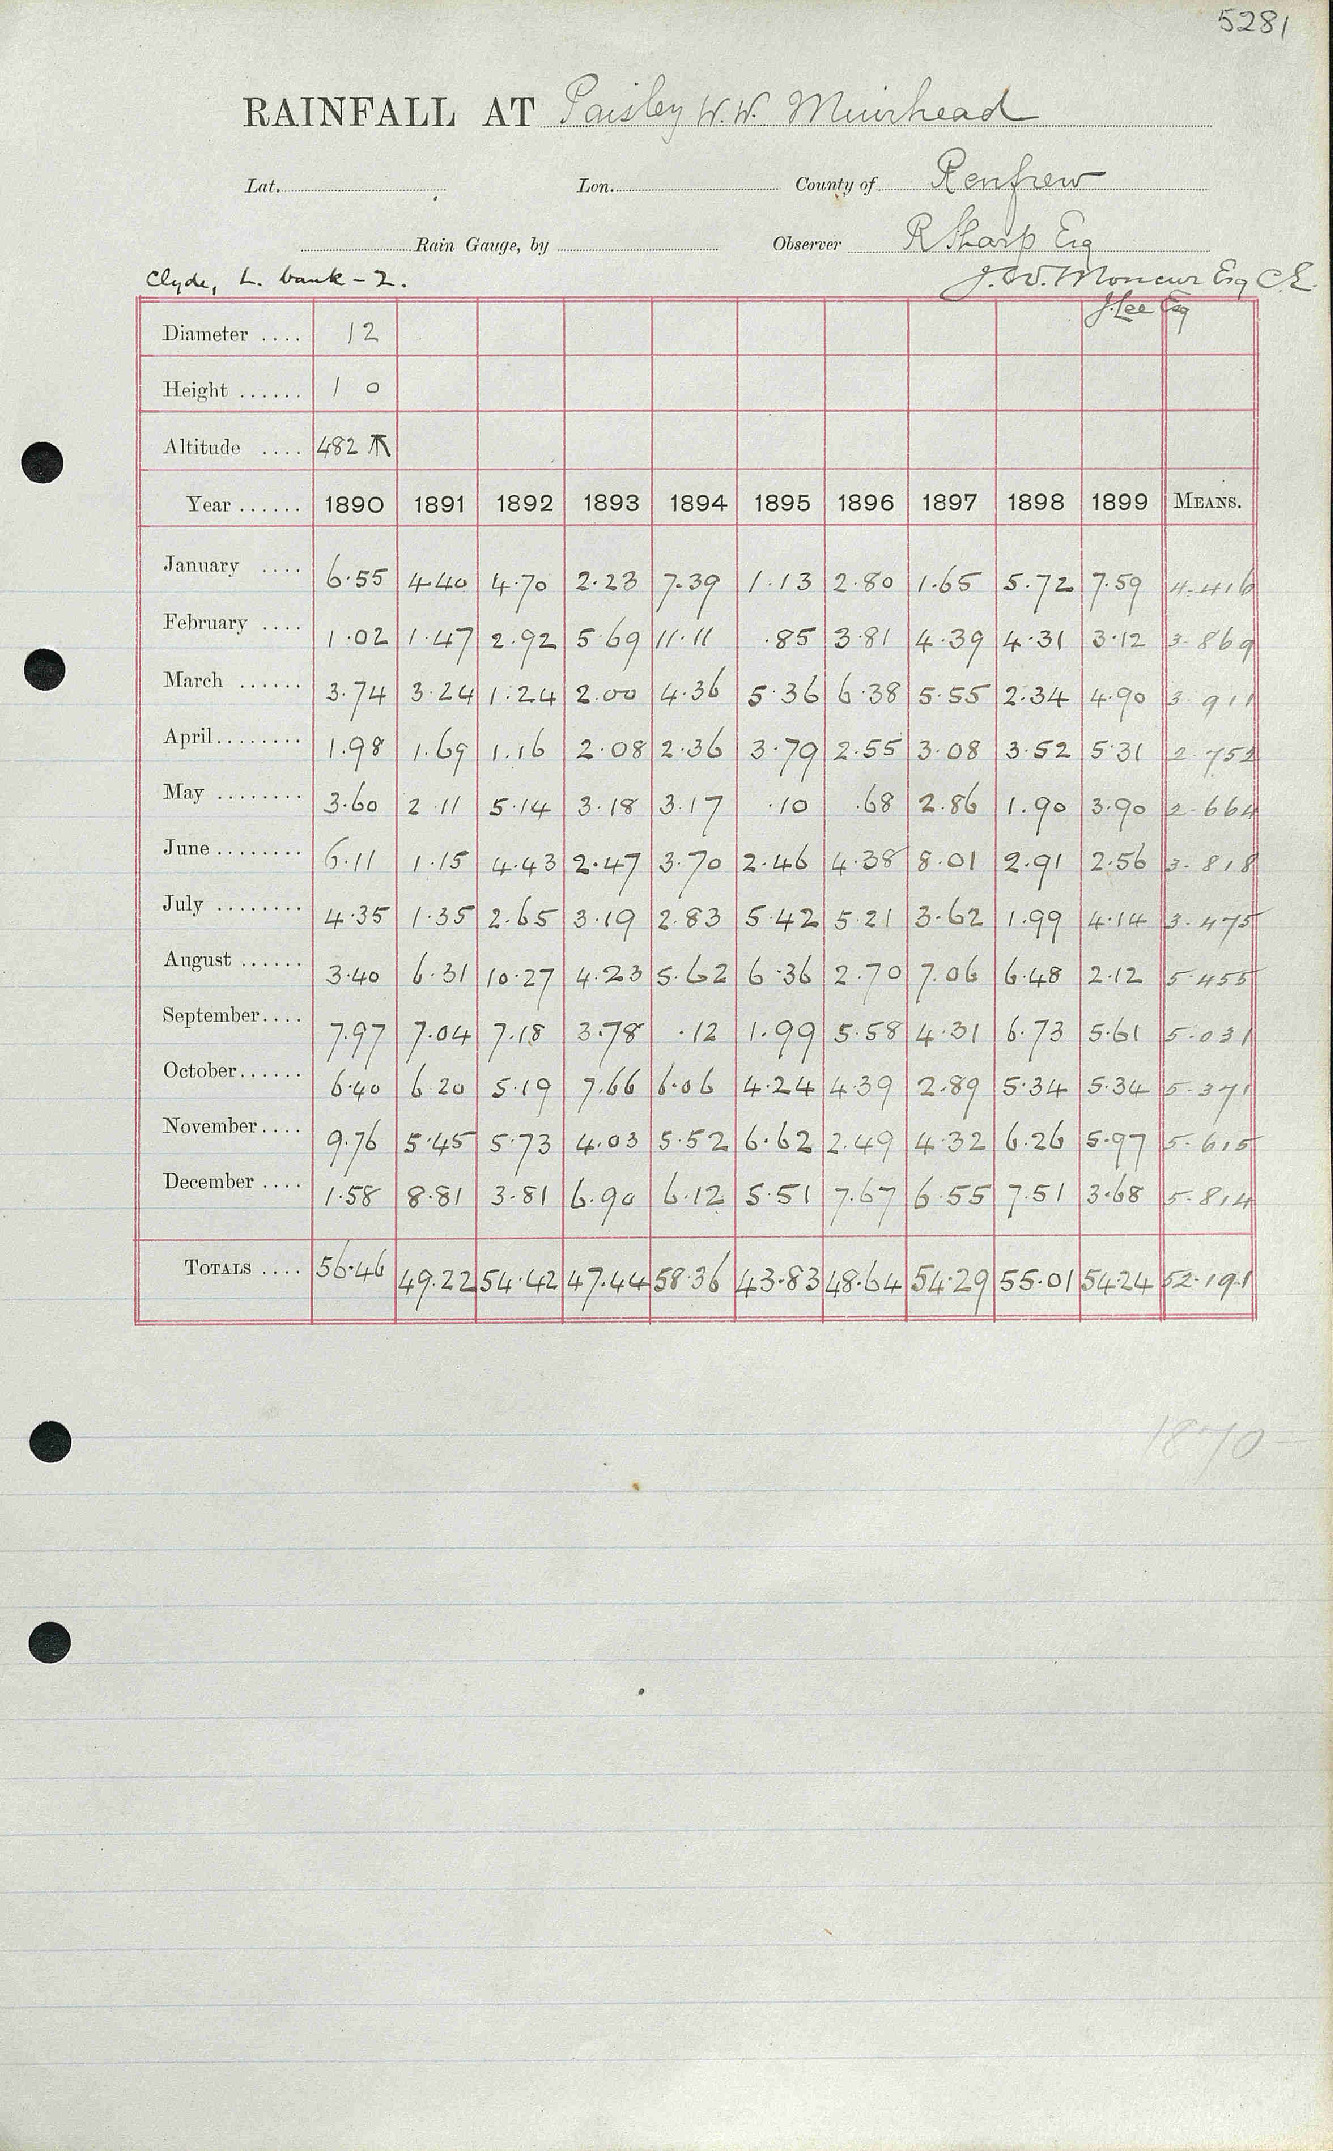 5281
RAINFALL AT Paisley W.W. Muirhead
Lat. Lon. County of Renfrew
Rain Gauge, by Observer R Sharp Esq
Clyde, L. bank - 2. J.W. Moncur Esq C.E.
J. Lee Esq
Diameter .... 12
Height ...... 1 0
Altitude .... 482
Year ...... 1890 1891 1892 1893 1894 1895 1896 1897 1898 1899 MEANS.
January .... 6.55 4.40 4.70 2.23 7.39 1.13 2.80 1.65 5.72 7.59 4.416
February .... 1.02 1.47 2.92 5.69 11.11 .85 3.81 4.39 4.31 3.12 3.869
March ...... 3.74 3.24 1.24 2.00 4.36 5.36 6.38 5.55 2.34 4.90 3.911
April ........ 1.98 1.69 1.16 2.08 2.36 3.79 2.55 3.08 3.52 5.31 2.752
May ........ 3.60 2.11 5.14 3.18 3.17 .10 .68 2.86 1.90 3.90 2.664
June ........ 6.11 1.15 4.43 2.47 3.70 2.46 4.38 8.01 2.91 2.56 3.818
July ........ 4.35 1.35 2.65 3.19 2.83 5.42 5.21 3.62 1.99 4.14 3.475
August ...... 3.40 6.31 10.27 4.23 5.62 6.36 2.70 7.06 6.48 2.12 5.455
September .... 7.97 7.04 7.18 3.78 .12 1.99 5.58 4.31 6.73 5.61 5.031
October ...... 6.40 6.20 5.19 7.66 6.06 4.24 4.39 2.89 5.34 5.34 5.371
November .... 9.76 5.45 5.73 4.03 5.52 6.62 2.49 4.32 6.26 5.97 5.615
December .... 1.58 8.81 3.81 6.90 6.12 5.51 7.67 6.55 7.51 3.68 5.814
TOTALS .... 56.46 49.22 54.42 47.44 58.36 43.83 48.64 54.29 55.01 54.24 52.191
1870